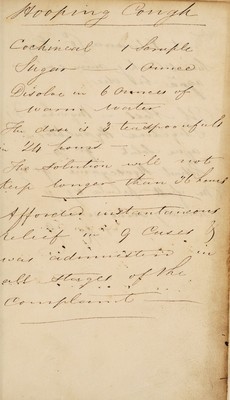 Hooping Cough
Cochineal 1 Scruple
Sugar — 1 Ounce
Disolve in 6 Ounces of
warm water
The dose is 3 teaspoonfuls
in 24 hours —
The solution will not
keep longer than 36 hours
Afforded instantaneous
relief in 9 Cases &
was administered in
all stages of the
Complaint